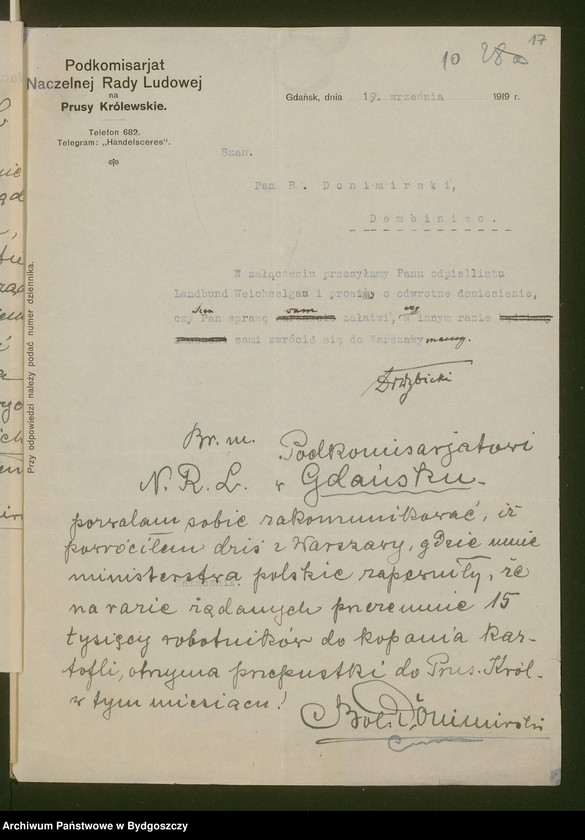 17
10 28a
Podkomisarjat
Naczelnej Rady Ludowej
na
Prusy Królewskie.
Telefon 682.
Telegram: „Handelsceres".
Gdańsk, dnia 19. września 1919 r.
Szan.
Pan B. Donimirski,
Dembiniec.
W załączeniu przesyłamy Panu odpis listu
Landbund Weichselgau i prosimy o odwrotne doniesienie,
czy Pan sprawę sam załatwi, czy w innym razie
sami zwrócić się do Warszawy mamy.
Br. m. Podkomisarjatowi
N. R. L. w Gdańsku
pozwalam sobie zakomunikować, iż
powróciłem dziś z Warszawy, gdzie mnie
ministerstwa polskie zapewniły, że
na razie żądanych przezemnie 15
tysięcy robotników do kopania kar-
tofli, otrzyma przepustki do Prus. Król.
w tym miesiącu!
Bol. Donimirski
Przy odpowiedzi należy podać numer dziennika.
Archiwum Państwowe w Bydgoszczy